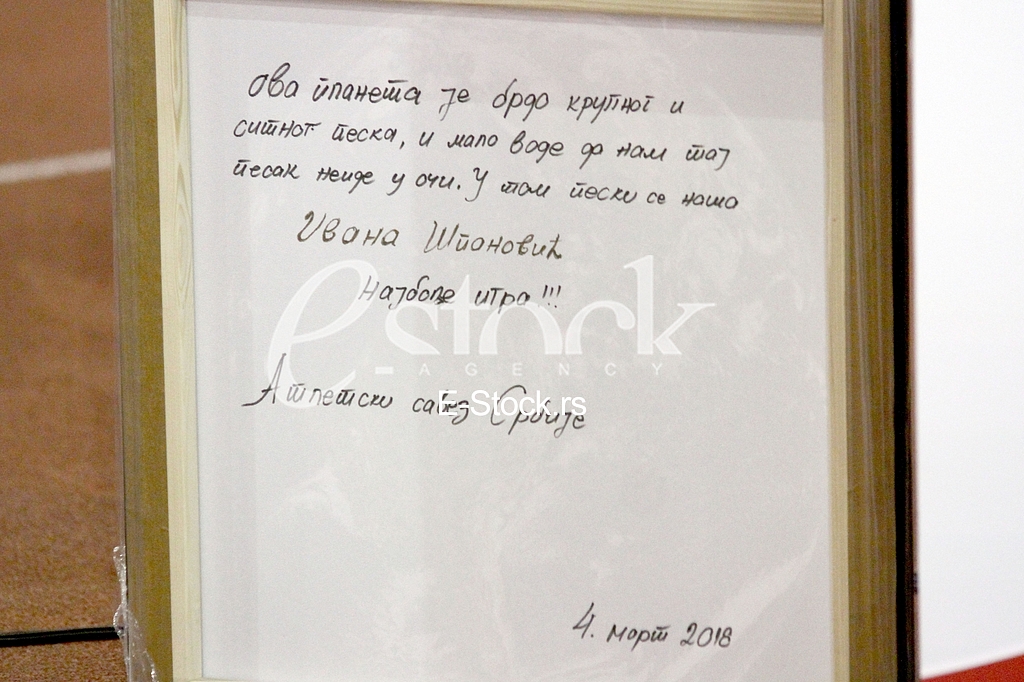 Ова планета је брдо крупног и
ситног песка, и мало воде да нам тај
песак неиде у очи. У том песку се наша
Ивана Шпановић
Најбоље игра !!!
estock
AGENCY
Атлетски савез Србије
E-Stock.rs
4. март 2018